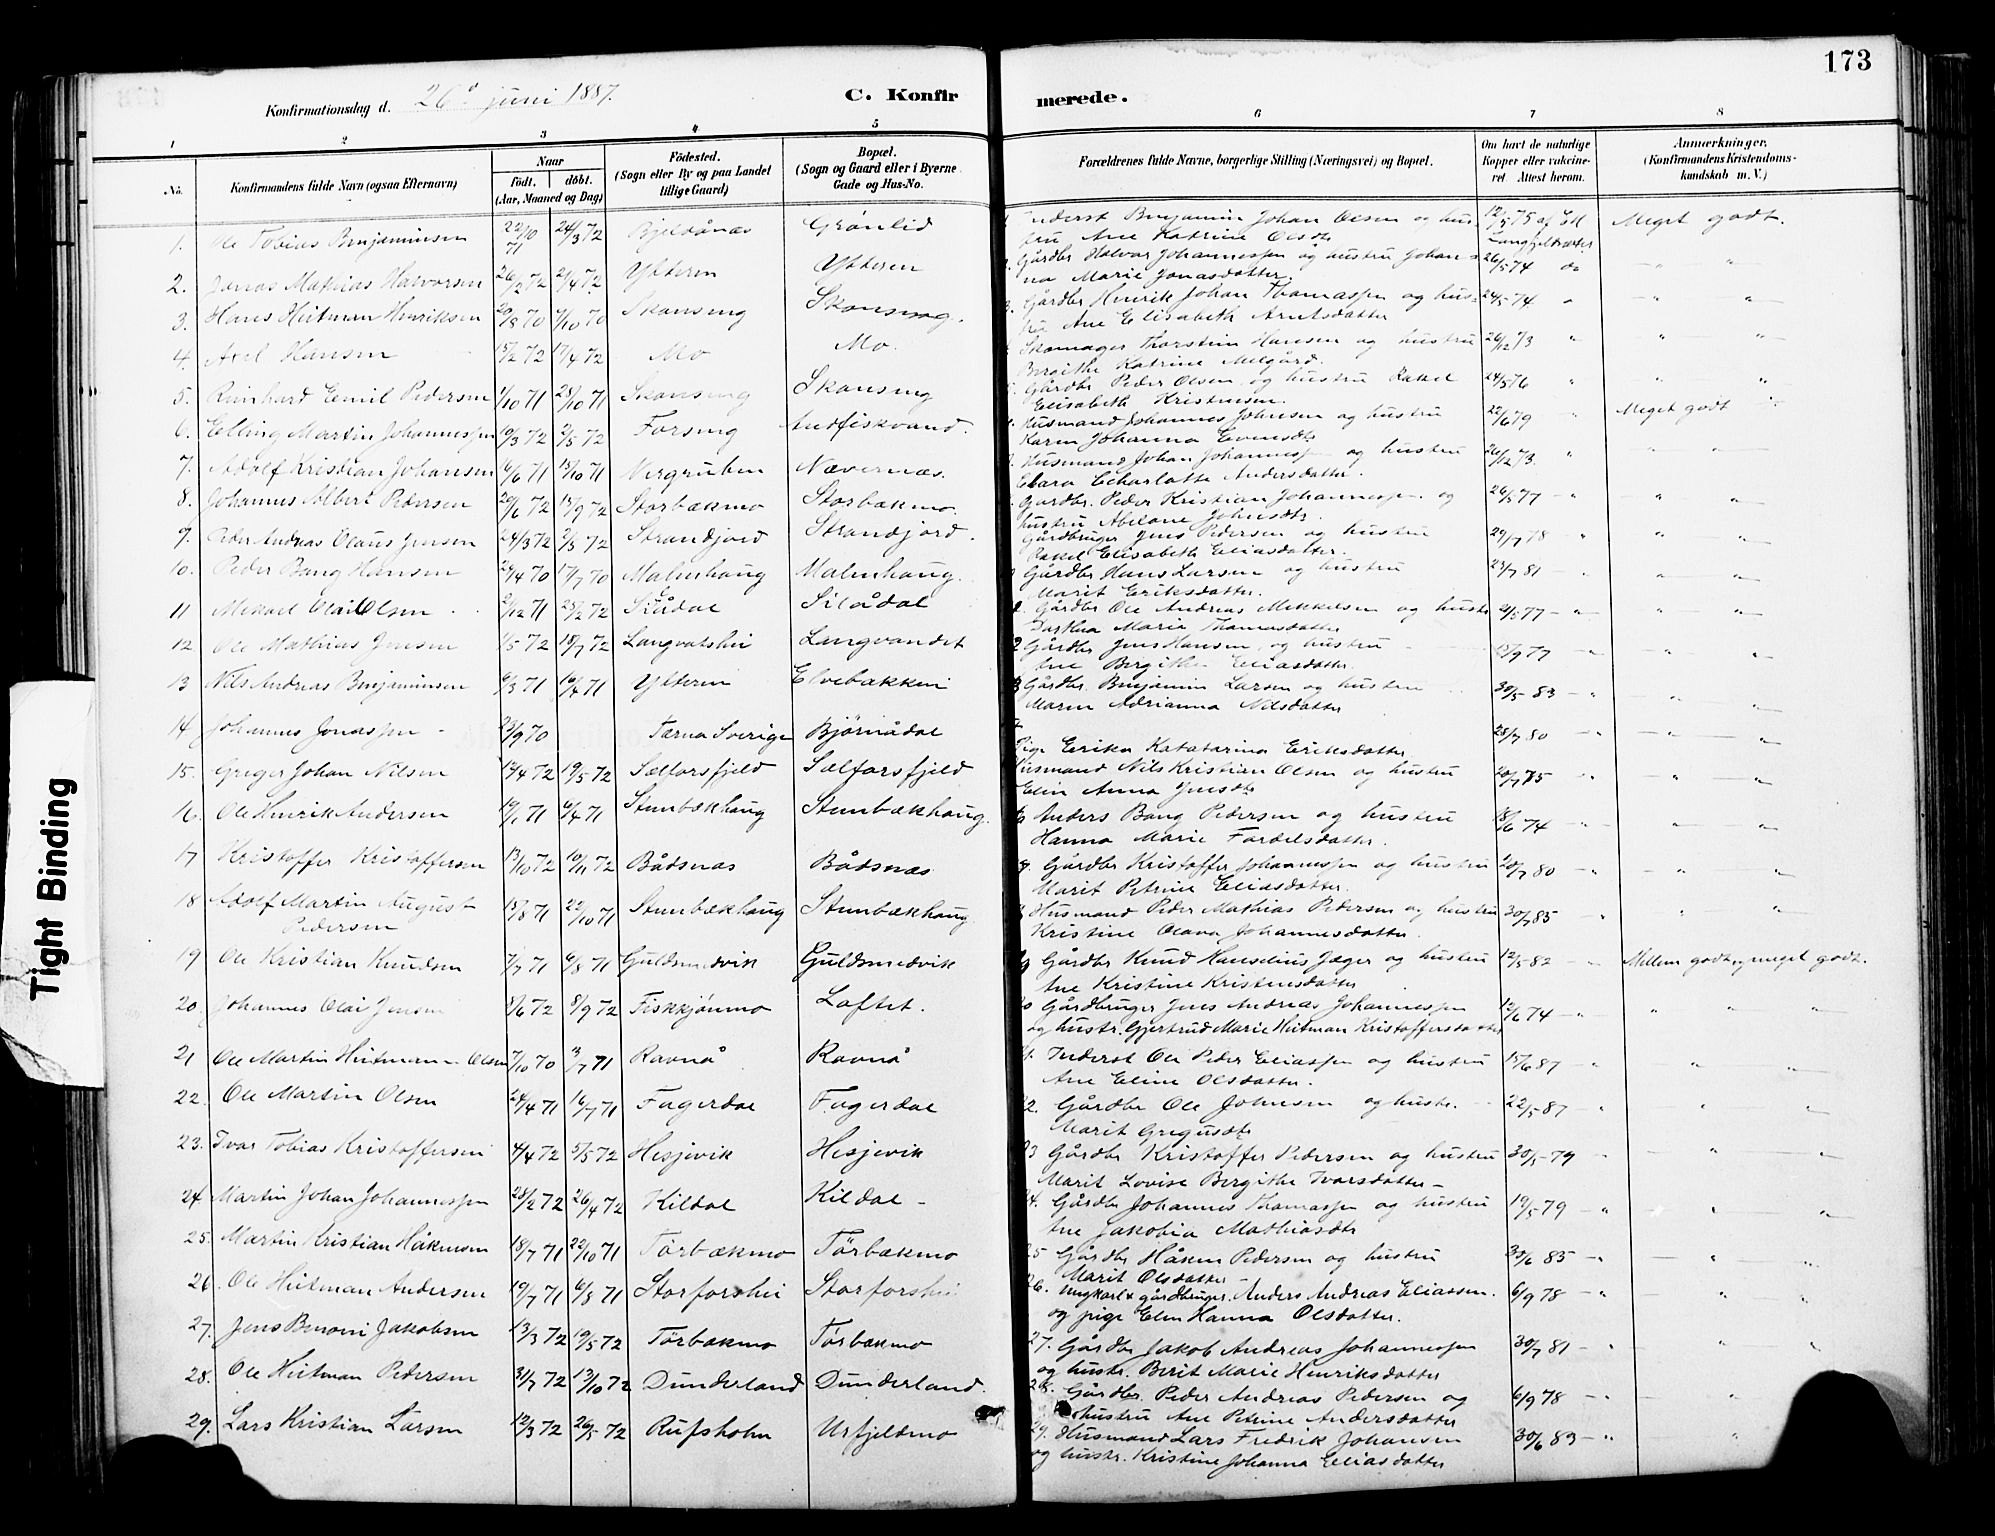 173
Konfirmationsdag d. 26de juni 1887.
C. Konfir merede.
1 2 3 4 5 6 7 8
No. Konfirmandens fulde Navn (ogsaa Efternavn) Naar født. døbt. (Aar, Maaned og Dag) Fødested. (Sogn eller By og paa Landet tillige Gaard) Bopæl. (Sogn og Gaard eller i Byerne Gade og Hus-No. Forældrenes fulde Navne, borgerlige Stilling (Næringsvei) og Bopæl. Om havt de naturlige Kopper eller vakcineret. Attest herom. Anmerkninger. (Konfirmandens Kristendomskundskab m. V.)
1. Ole Tobias Benjaminsen 22/10 71 24/3 72 Bjeldånæs Grønlid Inderst Benjamin Johan Olsen og hustru Ane Katrine Olsdtr 12/5 75 Meget godt.
2. Jonas Mathias Halvorsen 26/2 72 2/4 72 Ytteren Ytteren Gårdbr Halvor Johannessen og hustru Johanna Marie Jonasdatter 26/5 74 do
3. Hans Hutman Henriksen 20/8 70 4/10 70 Skonseng Skonseng. Gårdbr Henrik Johan Thomassen og hustru Ane Elisabeth Arntsdatter 24/5 74
4. Axel Hansen 15/2 72 17/4 72 Mo Mo. Skomager Thorstein Hansen og hustru Birgithe Katrine Melgård. 26/12 73
5. Reinhard Emil Pedersen 1/10 71 28/10 71 Skonseng Skonseng Gårdbr Peder Olsen og hustru Rakel Elisabeth Kristensen. 24/5 76
6. Elling Martin Johannessen 19/3 72 2/5 72 Forseng Andfiskvand. Husmand Johannes Johnsen og hustru Karen Johanna Evensdtr 22/6 79 Meget godt
7. Adolf Kristian Johansen 16/6 71 15/10 71 Nergruben Nævernæs. Husmand Johan Johannessen og hustru Clara Charlotte Andersdatter. 26/12 73.
8. Johannes Albert Pedersen 20/6 72 15/9 72 Storbækmo Storbækmo. Gårdbr. Peder Kristian Johannessen og hustru Abelone Johnsdtr. 26/5 77
9. Peder Andreas Olaus Jensen 24/3 72 2/5 72 Strandjord Strandjord. Gårdbruger Jens Pedersen og hustru Rakel Elisabeth Eliasdatter. 29/7 78
10. Peder Bang Hansen 29/4 70 17/7 70 Malmhaug Malmhaug. Gårdbr Hans Larsen og hustru Marit Eriksdatter. 23/7 81
11 Mikael Olai Olsen 2/12 71 25/2 72 Silådal Silådal Gårdbr Ole Andreas Mikkelsen og hustr Dorthea Marie Thomasdatter 21/5 77
12 Ole Mathias Jensen 1/5 72 18/7 72 Langvatshei Langvandet Gårdbr Jens Hansen og hustru Ane Bergithe Eliasdatter. 13/9 77
13 Nils Andreas Benjaminsen 6/3 71 10/4 71 Ytteren Elvebakken Gårdbr. Benjamin Larsen og hustru Maren Adrianna Nilsdatter 30/5 83
14 Johannes Jonassen 23/9 70 Tærna Sverige Bjørnådal Pige Erika Katatarina Eriksdatter 28/7 80
15. Greger Johan Nilsen 14/4 72 19/5 72 Sælforsfjeld Sælforsfjeld Husmand Nils Kristian Olsen og hustru Elen Anna Jensdtr 20/7 75
16. Ole Henrik Andersen 19/1 71 6/4 71 Stenbækhaug Stenbækhaug. Anders Bang Pedersen og hustru Hanna Marie Fordelsdatter. 18/6 74
17 Kristoffer Kristoffersen 13/10 72 10/11 72 Bådsnæs Bådsnæs Gårdbr Kristoffer Johannessen og hustru Marit Petrine Eliasdatter. 20/7 80
18 Adolf Martin August Pedersen 15/8 71 22/10 71 Stenbækhaug Stenbækhaug Husmand Peder Mathias Pedersen og hustru Kristine Olava Johannesdatter. 30/7 85
19 Ole Kristian Knudsen 7/7 71 6/8 71 Guldsmedvik Guldsmedvik Gårdbr Knud Hanselius Jæger og hustru Ane Kristine Kristensdatter 12/5 82 Mellem godt og meget godt.
20. Johannes Olai Jensen 8/6 72 8/9 72 Fiskkjønmo Loftet. Gårdbruger Jens Andreas Johannessen og hustr. Gjertrud Marie Hutman Kristoffersdatter 12/6 74
21 Ole Martin Hutman Olsen 7/10 70 3/7 71 Ravnå Ravnå Inderst Ole Peder Eliassen og hustru Ane Eline Olsdatter. 15/6 87
22. Ole Martin Olsen 24/4 71 16/7 71 Fagerdal Fagerdal 22. Gårdbr Ole Johnsen og hustr. Marit Gregusdtr 22/5 87
23. Ivar Tobias Kristoffersen 4/4 72 5/5 72 Hesjevik Hesjevik Gårdbr Kristoffer Pedersen og hustru Marit Lovise Bergithe Ivarsdatter 30/5 79
24 Martin Johan Johannessen 28/2 72 26/4 72 Kildal Kildal Gårdbr Johannes Thomassen og hustru Ane Jakobia Mathiasdtr 19/5 79
25. Martin Kristian Håkensen 18/7 71 22/10 71 Tørbækmo Tørbækmo 25 Gårdbr Håken Pedersen og hustru Marit Olsdatter 30/6 85
26. Ole Hutman Andersen 19/7 71 6/8 71 Storforshei Storforshei 26. Ungkarl & gårdbruger. Anders Andreas Eliassen. og pige Elen Hanna Olsdatter. 6/9 78
27. Jens Benoni Jakobsen 13/3 72 19/5 72 Tørbækmo Tørbækmo 27. Gårdbr Jakob Andreas Johannessen og hustr. Berit Marie Henriksdatter 30/7 81
28. Ole Hutman Pedersen 31/7 72 13/10 72 Dunderland Dunderland. 28. Gårdbr. Peder Andreas Pedersen og hustru Ane Petrine Andersdatter 6/9 78
29. Lars Kristian Larsen 12/3 72 26/5 72 Rufsholm Urfjeldmo 29. Husmand Lars Fredrik Johansen og hustr. Kristine Johanna Eliasdatter 30/6 83
Tight Binding